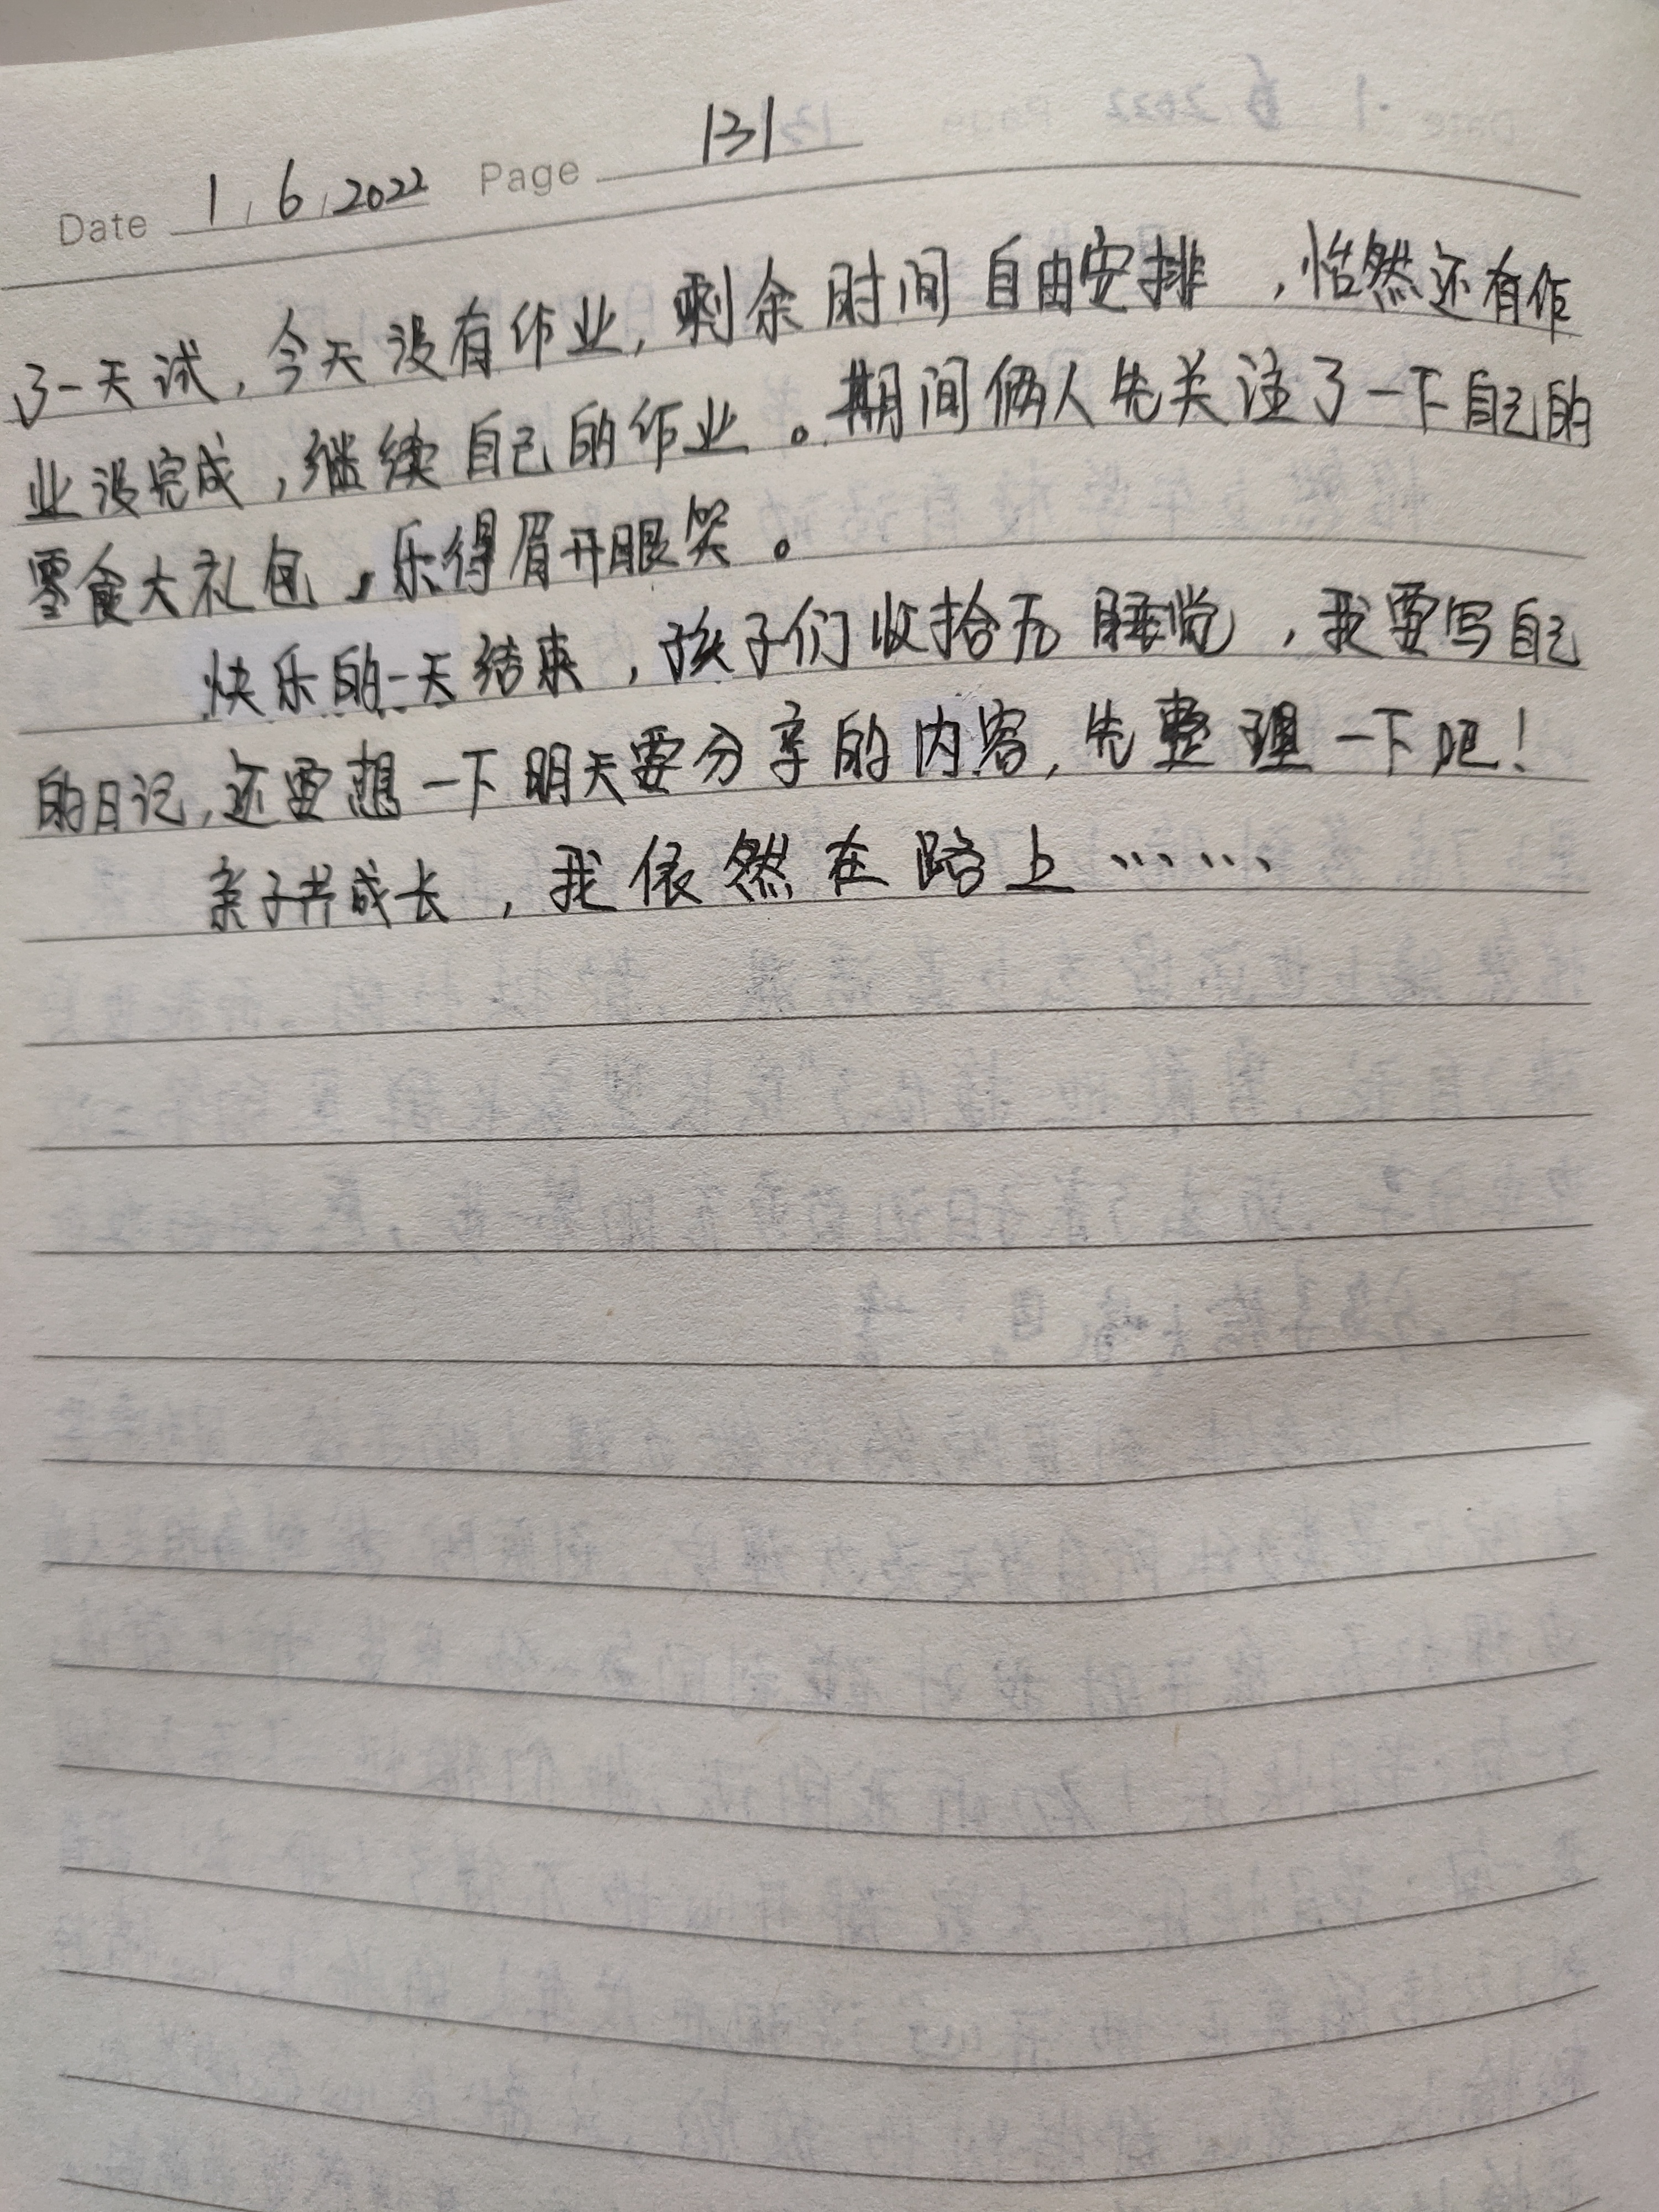 Date 1 / 6 / 2022 Page 131
了一天试,今天没有作业,剩余时间自由安排,怡然还有作
业没完成,继续自己的作业。期间俩人先关注了一下自己的
零食大礼包,乐得眉开眼笑。
快乐的一天结束,孩子们收拾完睡觉,我要写自己
的日记,还要想一下明天要分享的内容,先整理一下吧!
亲子共成长,我依然在路上……